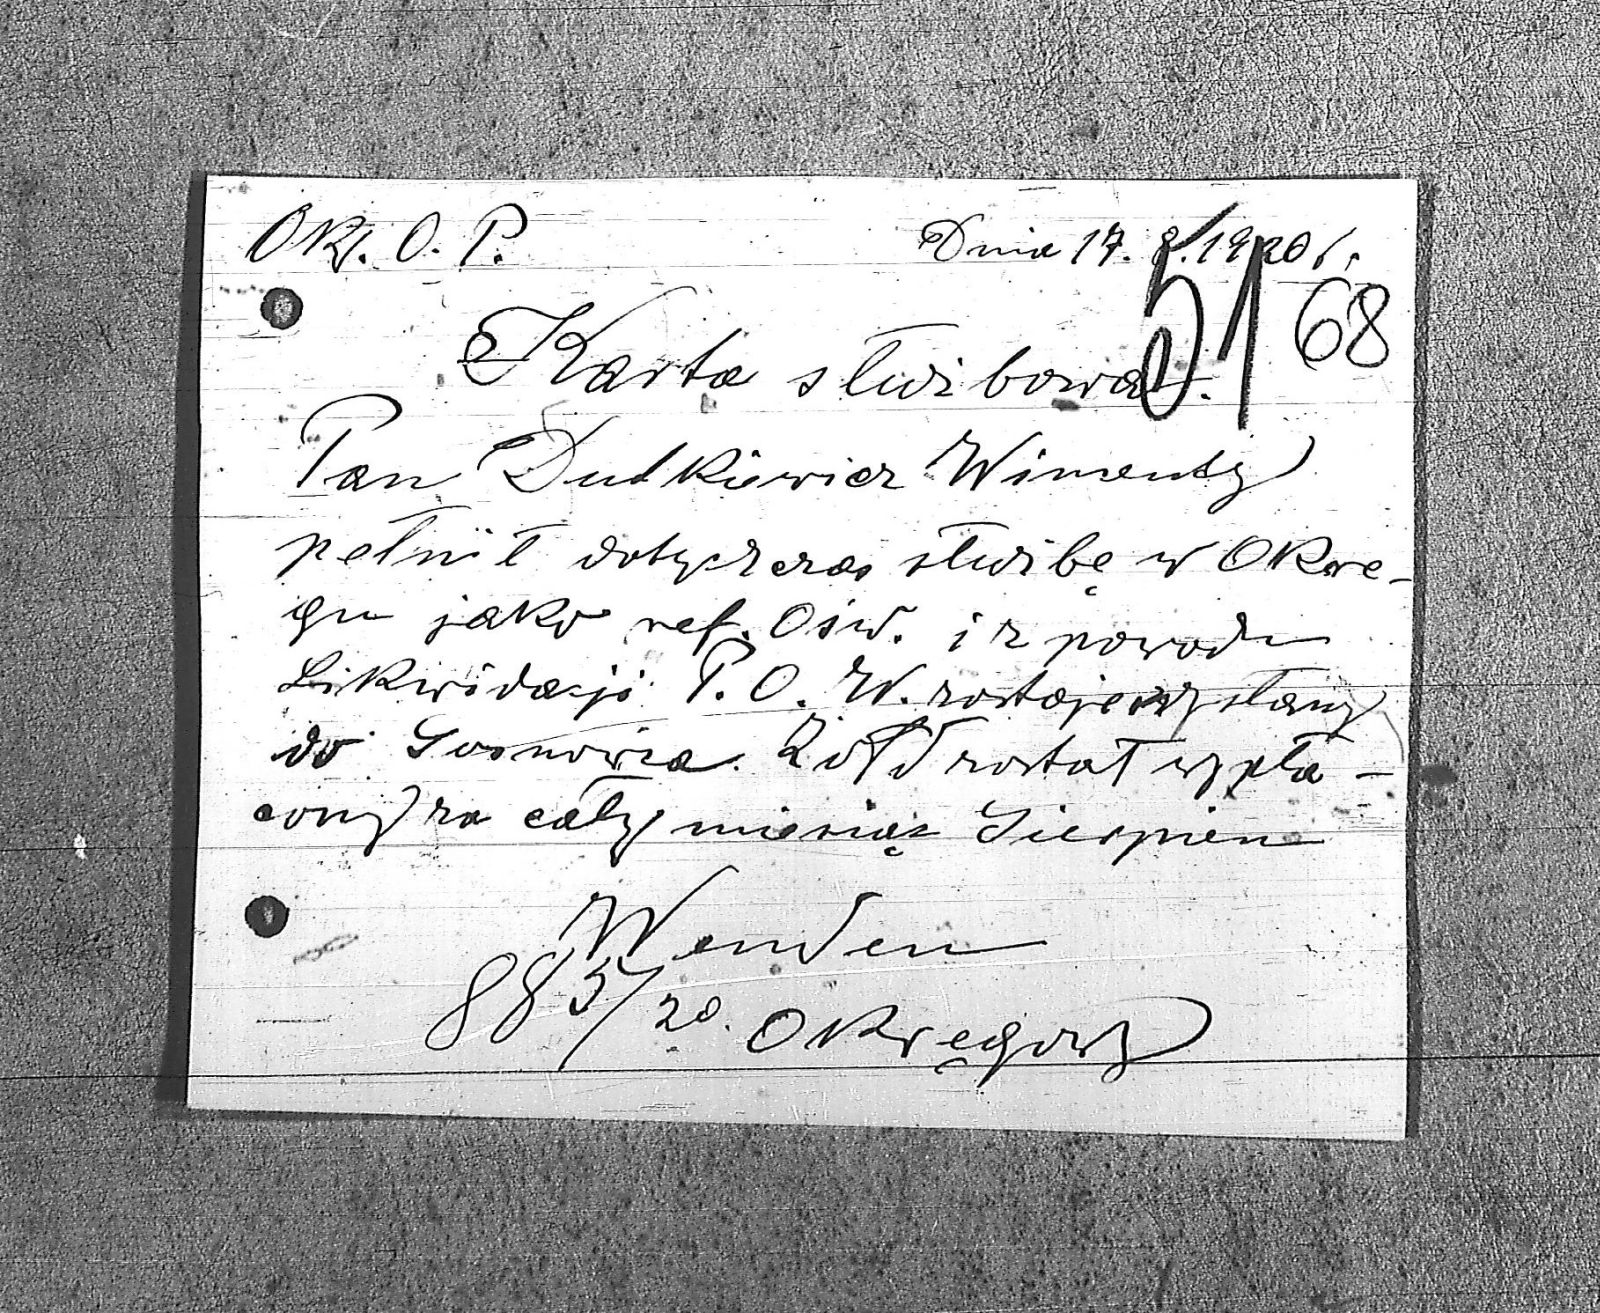 Okr. O. P. Dnia 17. 8. 1920 r.
51 68
Karta służbowa.
Pan Dudkiewicz Wincenty
pełnił dotychczas służbę w Okrę-
gu jako ref. Ośw. i z powodu
Likwidacji P. O. W. zostaje wysłany
do Sosnowca. Żołd został wypła-
cony za cały miesiąc Sierpień
Wanden
885/20. Okręgowy